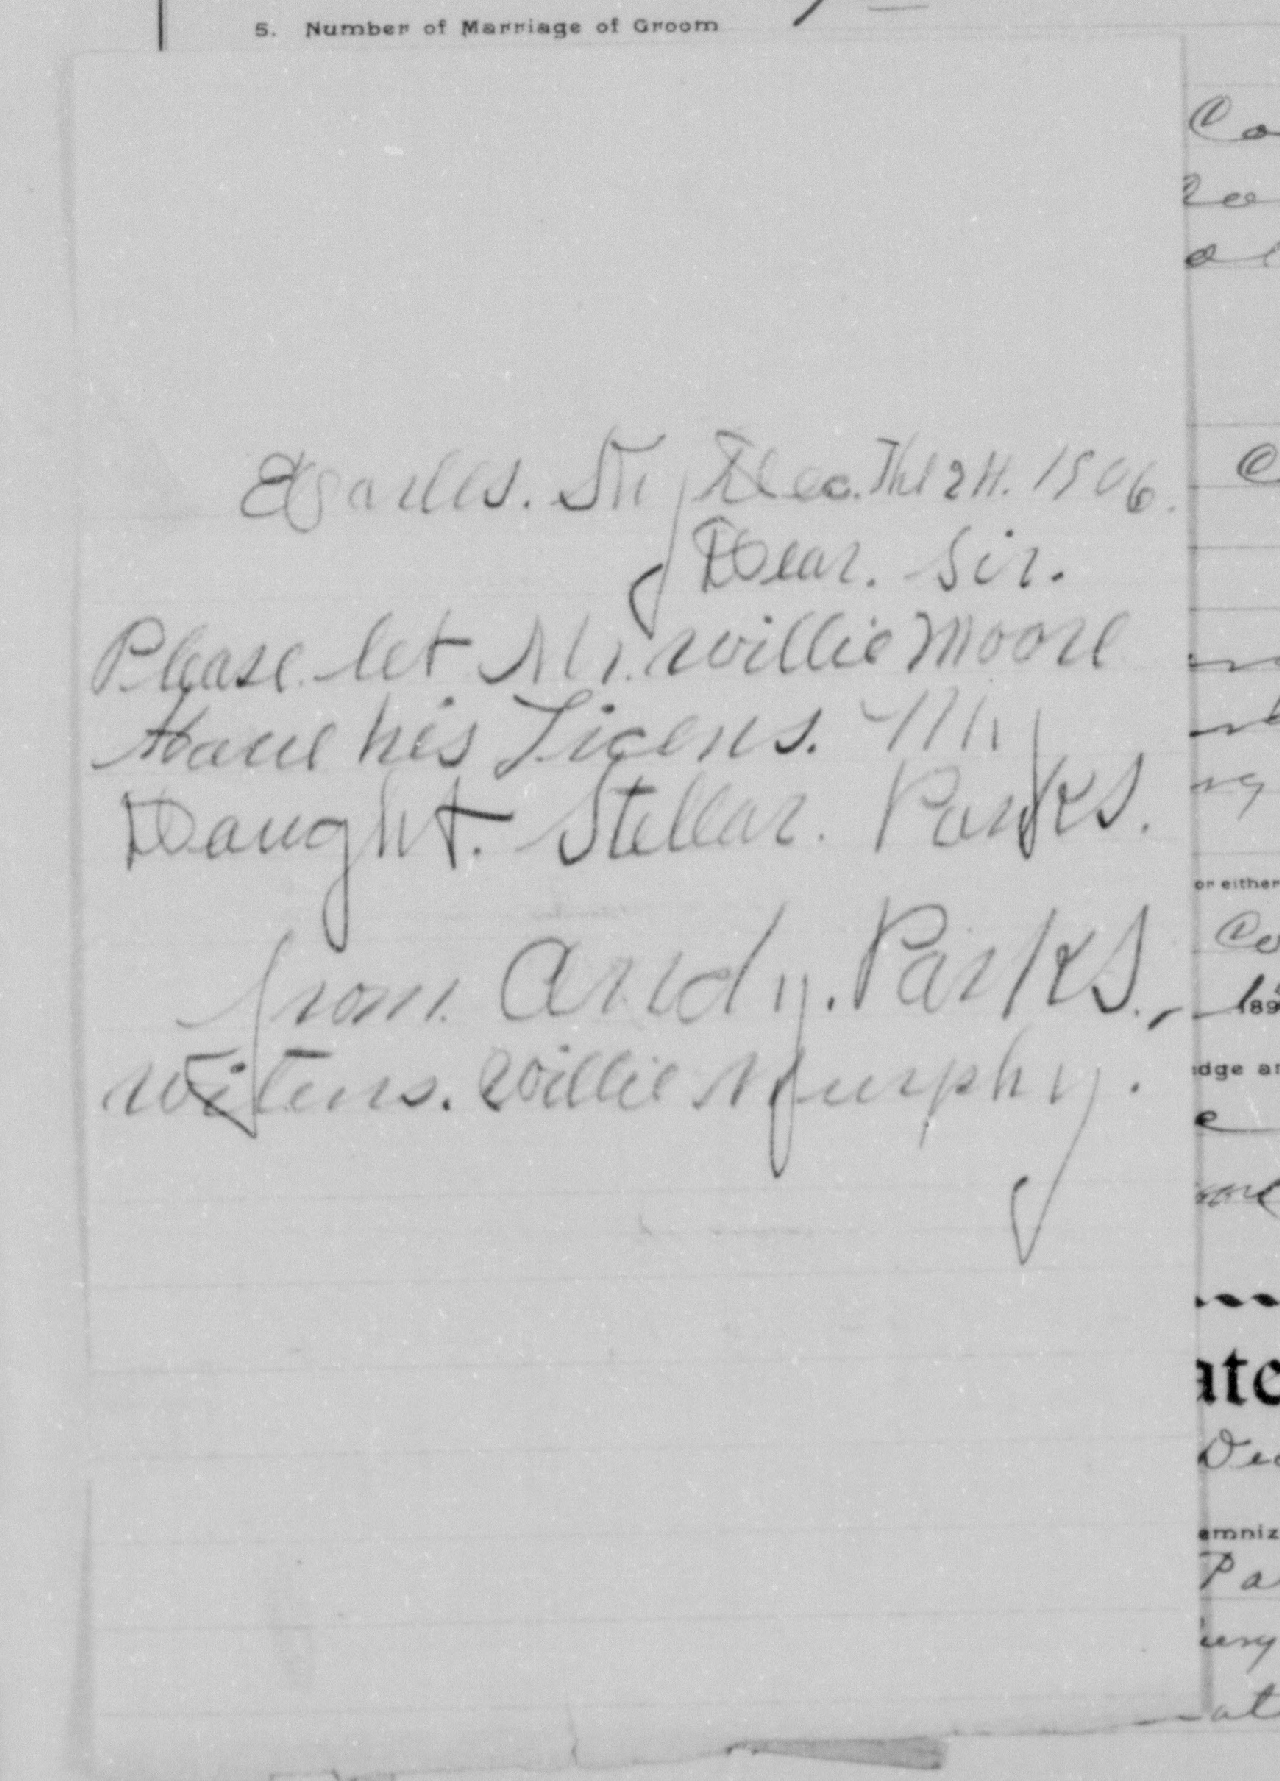 5. Number of Marriage of Groom
Ky Dec. The 24. 1906.
Dear. Sir.
Please. let Mr. Willie Moore
Have his Licens. My
Daught. Stellar. Parks.
from. Andy. Parks.
Witens. Willie Murphy.
or either
189
dge an
ate
Dec
emniz
Pa